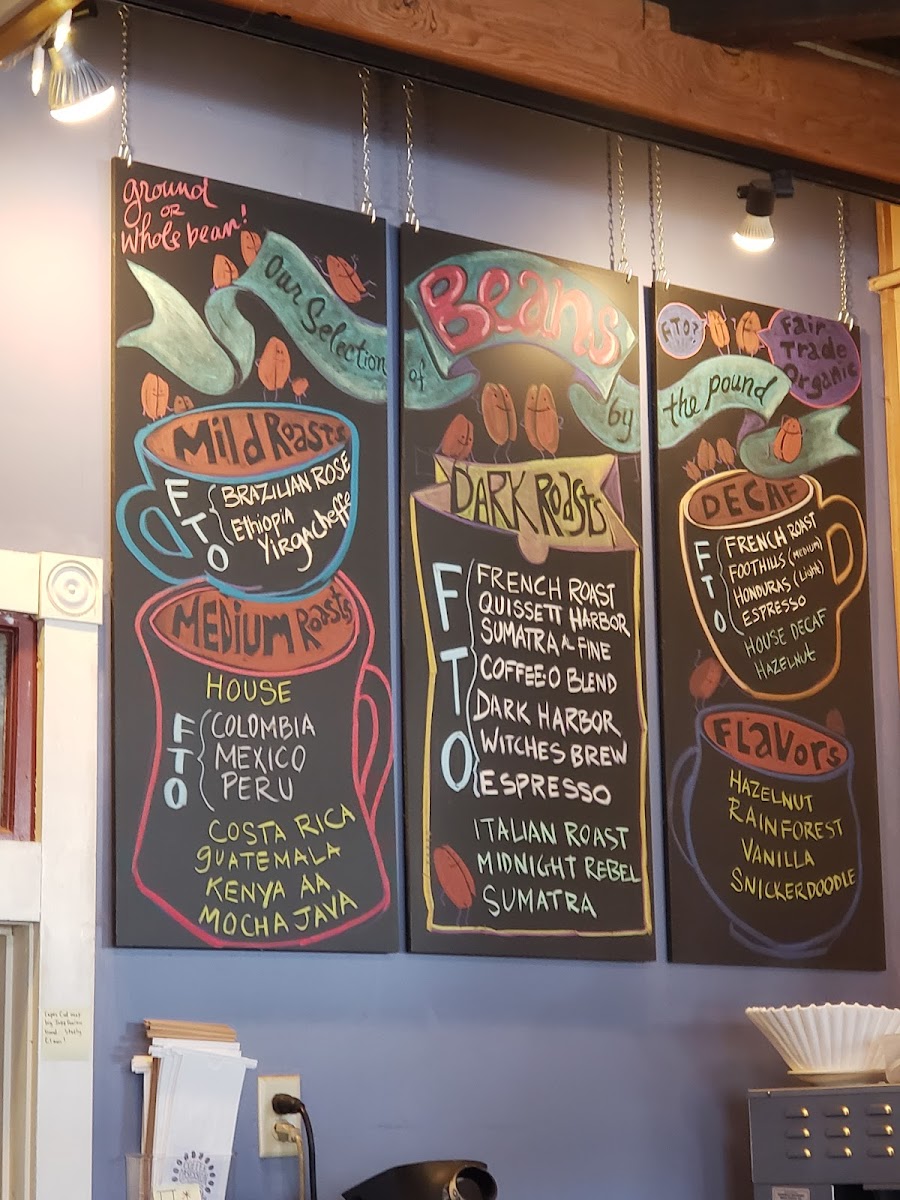 ground
OR
Whole bean!
Our Selection of
Beans
by the pound
FTO?
Fair
Trade
Organic
Mild Roasts
FTO
BRAZILIAN ROSE
Ethiopia
Yirgacheffe
MEDIUM Roasts
HOUSE
FTO
COLOMBIA
MEXICO
PERU
COSTA RICA
GUATEMALA
KENYA AA
MOCHA JAVA
DARK Roasts
FTO
FRENCH ROAST
QUISSETT HARBOR
SUMATRA FINE
COFFEE-O BLEND
DARK HARBOR
WITCHES BREW
ESPRESSO
ITALIAN ROAST
MIDNIGHT REBEL
SUMATRA
DECAF
FTO
FRENCH ROAST
FOOTHILLS (MEDIUM)
HONDURAS (Light)
ESPRESSO
HOUSE DECAF
HAZELNUT
FLAVORS
HAZELNUT
RAINFOREST
VANILLA
SNICKERDOODLE